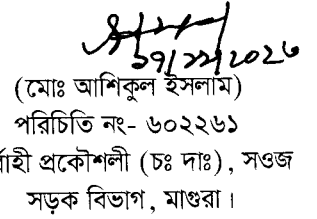 ১৭/১১/২০২৩
(মোঃ আশিকুল ইসলাম)
পরিচিতি নং- ৬০২২৬১
র্বাহী প্রকৌশলী (চঃ দাঃ), সওজ
সড়ক বিভাগ, মাগুরা।